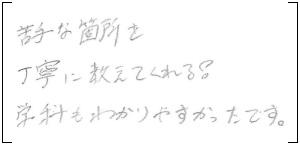 苦手な箇所を
丁寧に教えてくれる？
学科もわかりやすかったです。